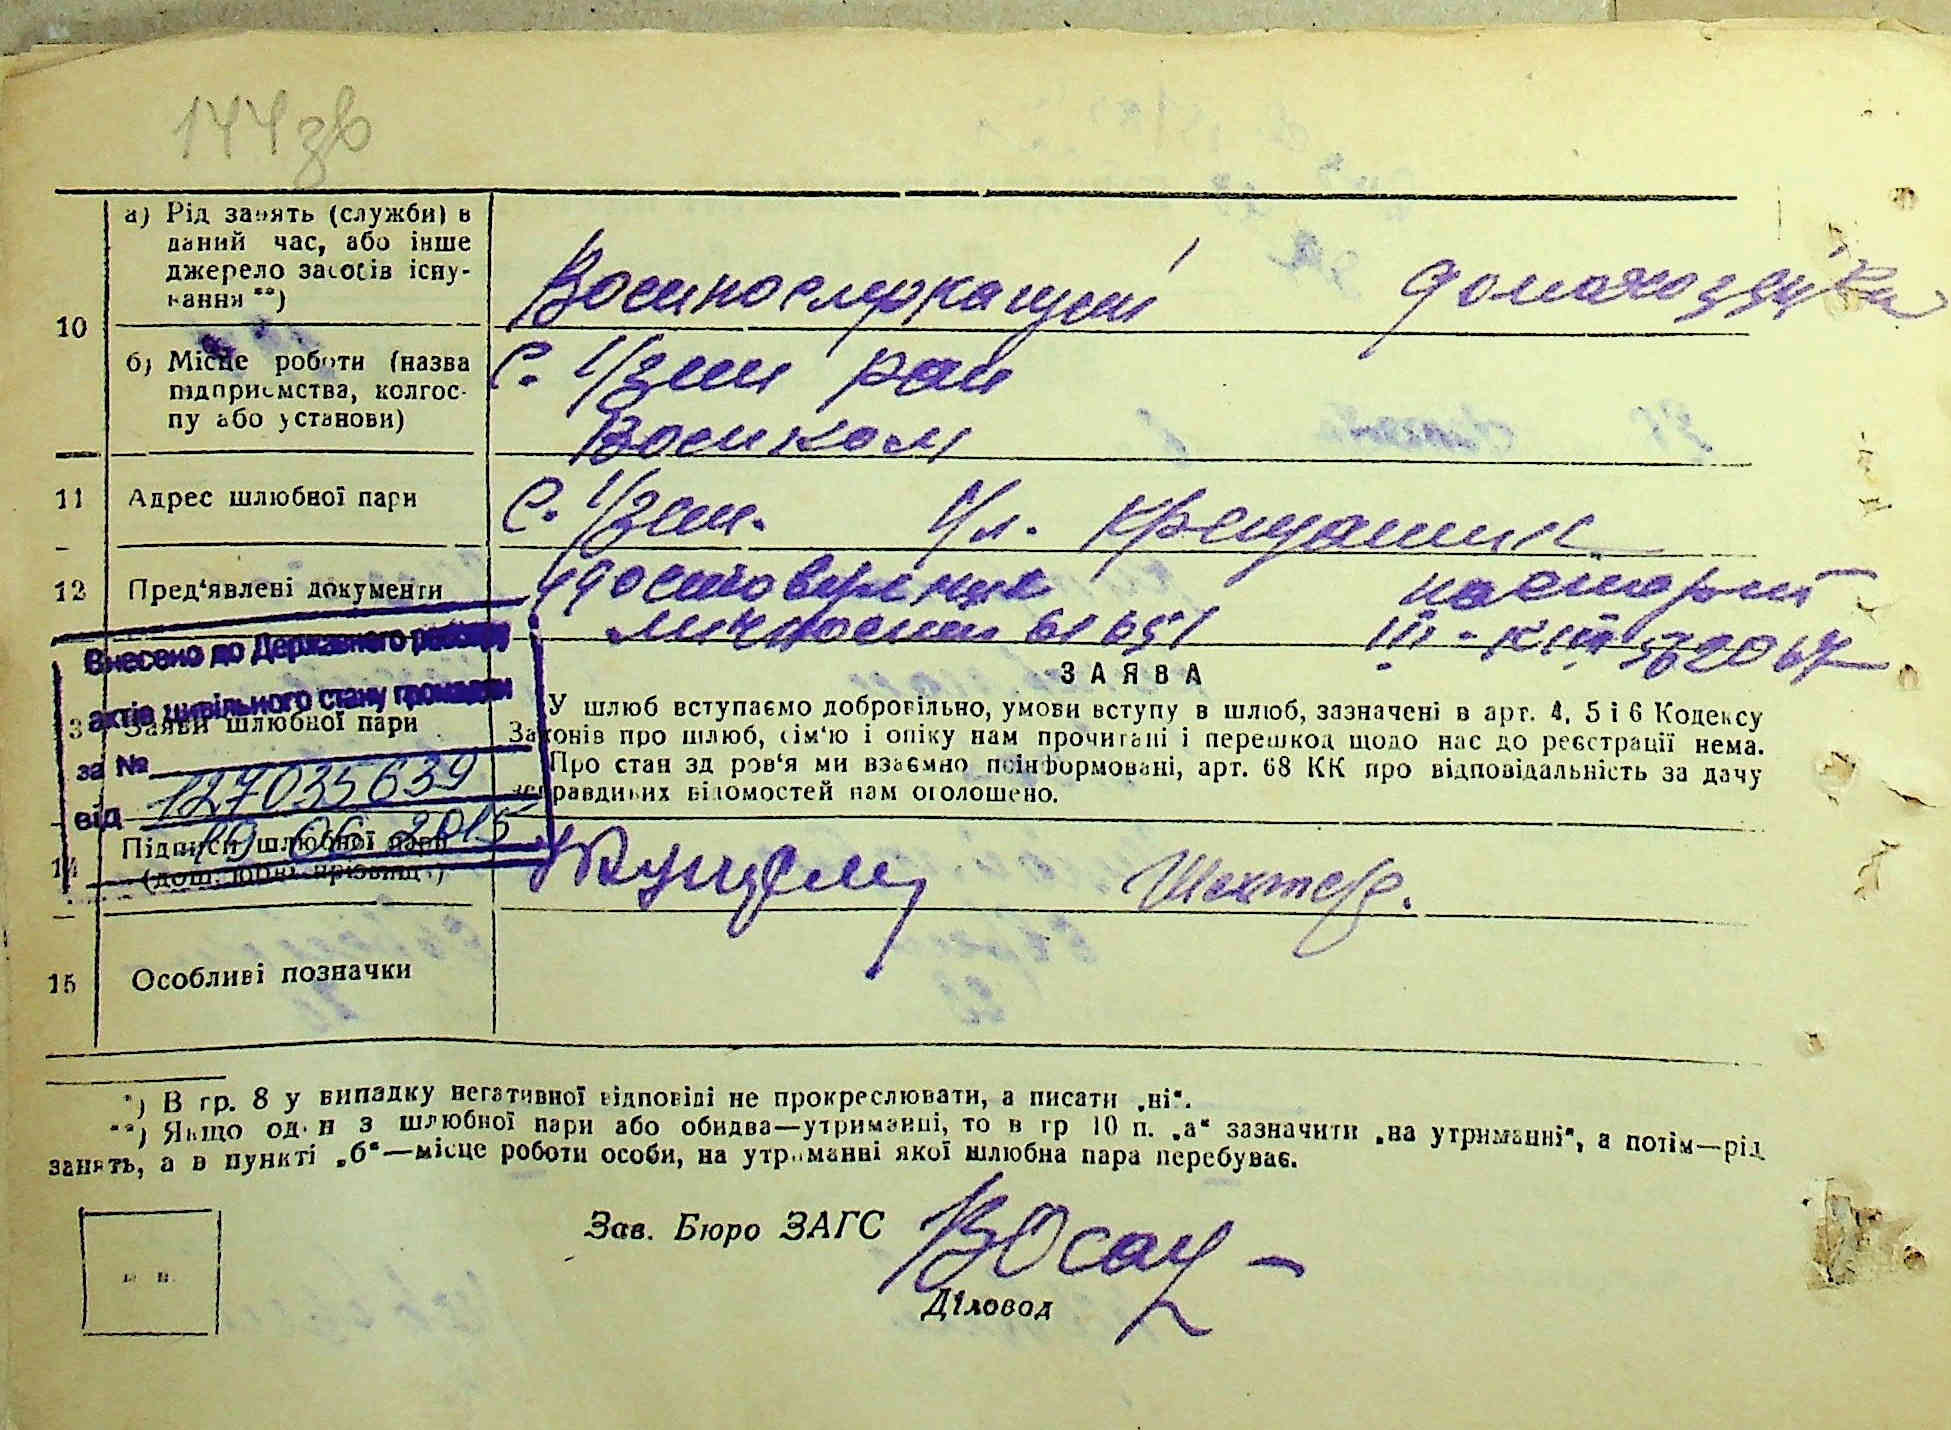 144 зв
10
а) Рід занять (служби) в
даний час, або інше
джерело засобів існу-
вання **)
Военнослужащий домохозяйка
б) Місце роботи (назва
підприємства, колгос-
пу або установи)
С. Узин рай
Военком
11 Адрес шлюбної пари С. Узин. Ул. Крещатик
12 Пред‘явлені документи
удостоверение паспорт
личности 61651 III-
Внесено до Державного реєстру
актів цивільного стану громадян
за № 127035639
від 19 06 2015
Заяви шлюбної пари
ЗАЯВА
У шлюб вступаємо добровільно, умови вступу в шлюб, зазначені в арт. 4, 5 і 6 Кодексу
Законів про шлюб, сім‘ю і опіку нам прочитані і перешкод щодо нас до реєстрації нема.
Про стан здоров‘я ми взаємно поінформовані, арт. 68 КК про відповідальність за дачу
неправдивих відомостей нам оголошено.
14 Підписи шлюбної пари
(дошлюбні прізвища)
Шехтер.
15 Особливі позначки
*) В гр. 8 у випадку негативної відповіді не прокреслювати, а писати „ні“.
**) Якщо один з шлюбної пари або обидва—утриманці, то в гр 10 п. „а“ зазначити „на утриманні“, а потім—рід
занять, а в пункті „б“—місце роботи особи, на утриманні якої шлюбна пара перебуває.
Зав. Бюро ЗАГС
Діловод
м. п.